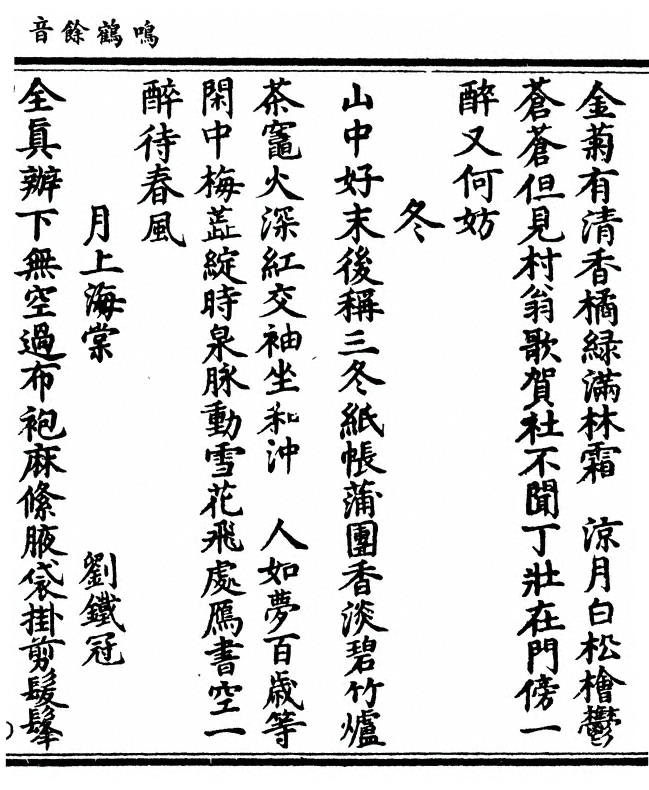 鳴鶴餘音
金菊有清香橘綠滿林霜　涼月白松檜鬱
蒼蒼但見村翁歌賀社不聞丁壯在門傍一
醉又何妨
冬
山中好末後稱三冬紙帳蒲團香淡碧竹爐
茶竈火深紅交袖坐和沖　人如夢百歲等
閑中梅蘂綻時泉脉動雪花飛處鴈書空一
醉待春風
月上海棠
劉鐵冠
全眞辦下無空過布袍麻絛腋袋掛剪髮髼